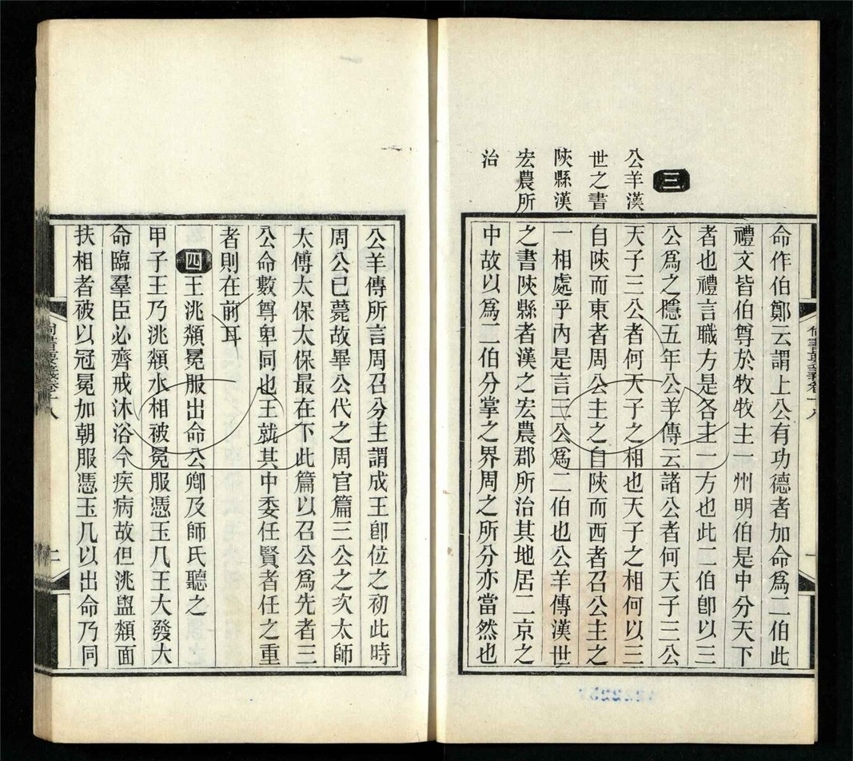 命作伯鄭云謂上公有功德者加命爲二伯此
禮文皆伯尊於牧牧主一州明伯是中分天下
者也禮言職方是各主一方也此二伯卽以三
三
公羊漢
世之書
陜縣漢
宏農所
治
公爲之隱五年公羊傳云諸公者何天子三公
天子三公者何天子之相也天子之相何以三
自陜而東者周公主之自陜而西者召公主之
一相處乎內是言三公爲二伯也公羊傳漢世
之書陜縣者漢之宏農郡所治其地居二京之
中故以爲二伯分掌之界周之所分亦當然也
公羊傳所言周召分主謂成王卽位之初此時
周公已薨故畢公代之周官篇三公之次太師
太傅太保太保最在下此篇以召公爲先者三
公命數尊卑同也王就其中委任賢者任之重
者則在前耳
四王洮頮冕服出命公卿及師氏聽之
甲子王乃洮頮水相被冕服憑玉几王大發大
命臨羣臣必齊戒沐浴今疾病故但洮盥頮面
扶相者被以冠冕加朝服憑玉几以出命乃同
尚書要義卷十八
二